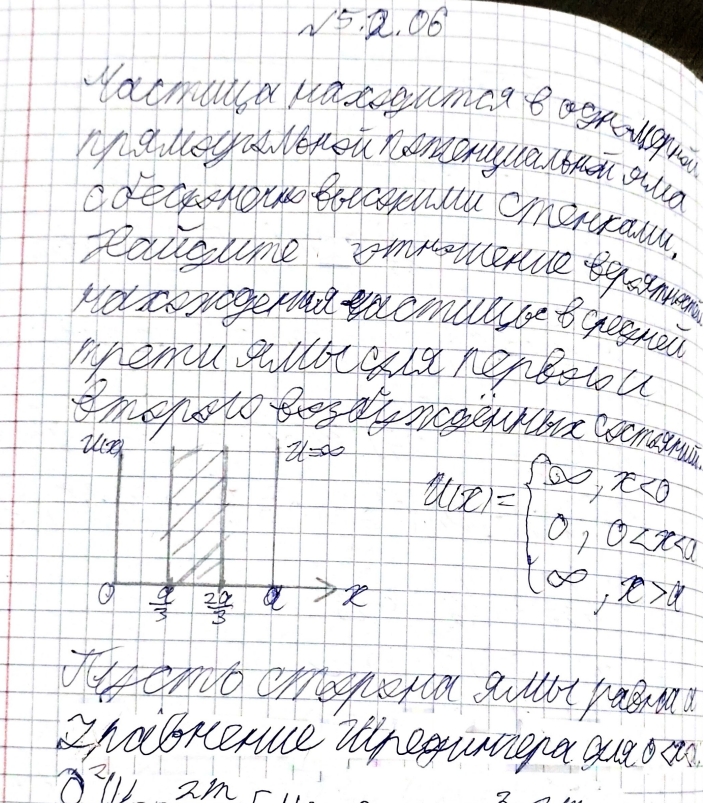 №5.2.06
Частица находится в одномерной
прямоугольной потенциальной яма
с бесконечно высокими стенками.
Найдите отношение вероятностей
нахождения частицы в средней
трети ямы для первого и
второго возбуждённых состояний.
U=∞ U=∞
0 a/3 2a/3 a x
U(x) = { ∞, x<0
0, 0<x<a
∞, x>a
Пусть сторона ямы равна a
Уравнение Шредингера для 0<x<